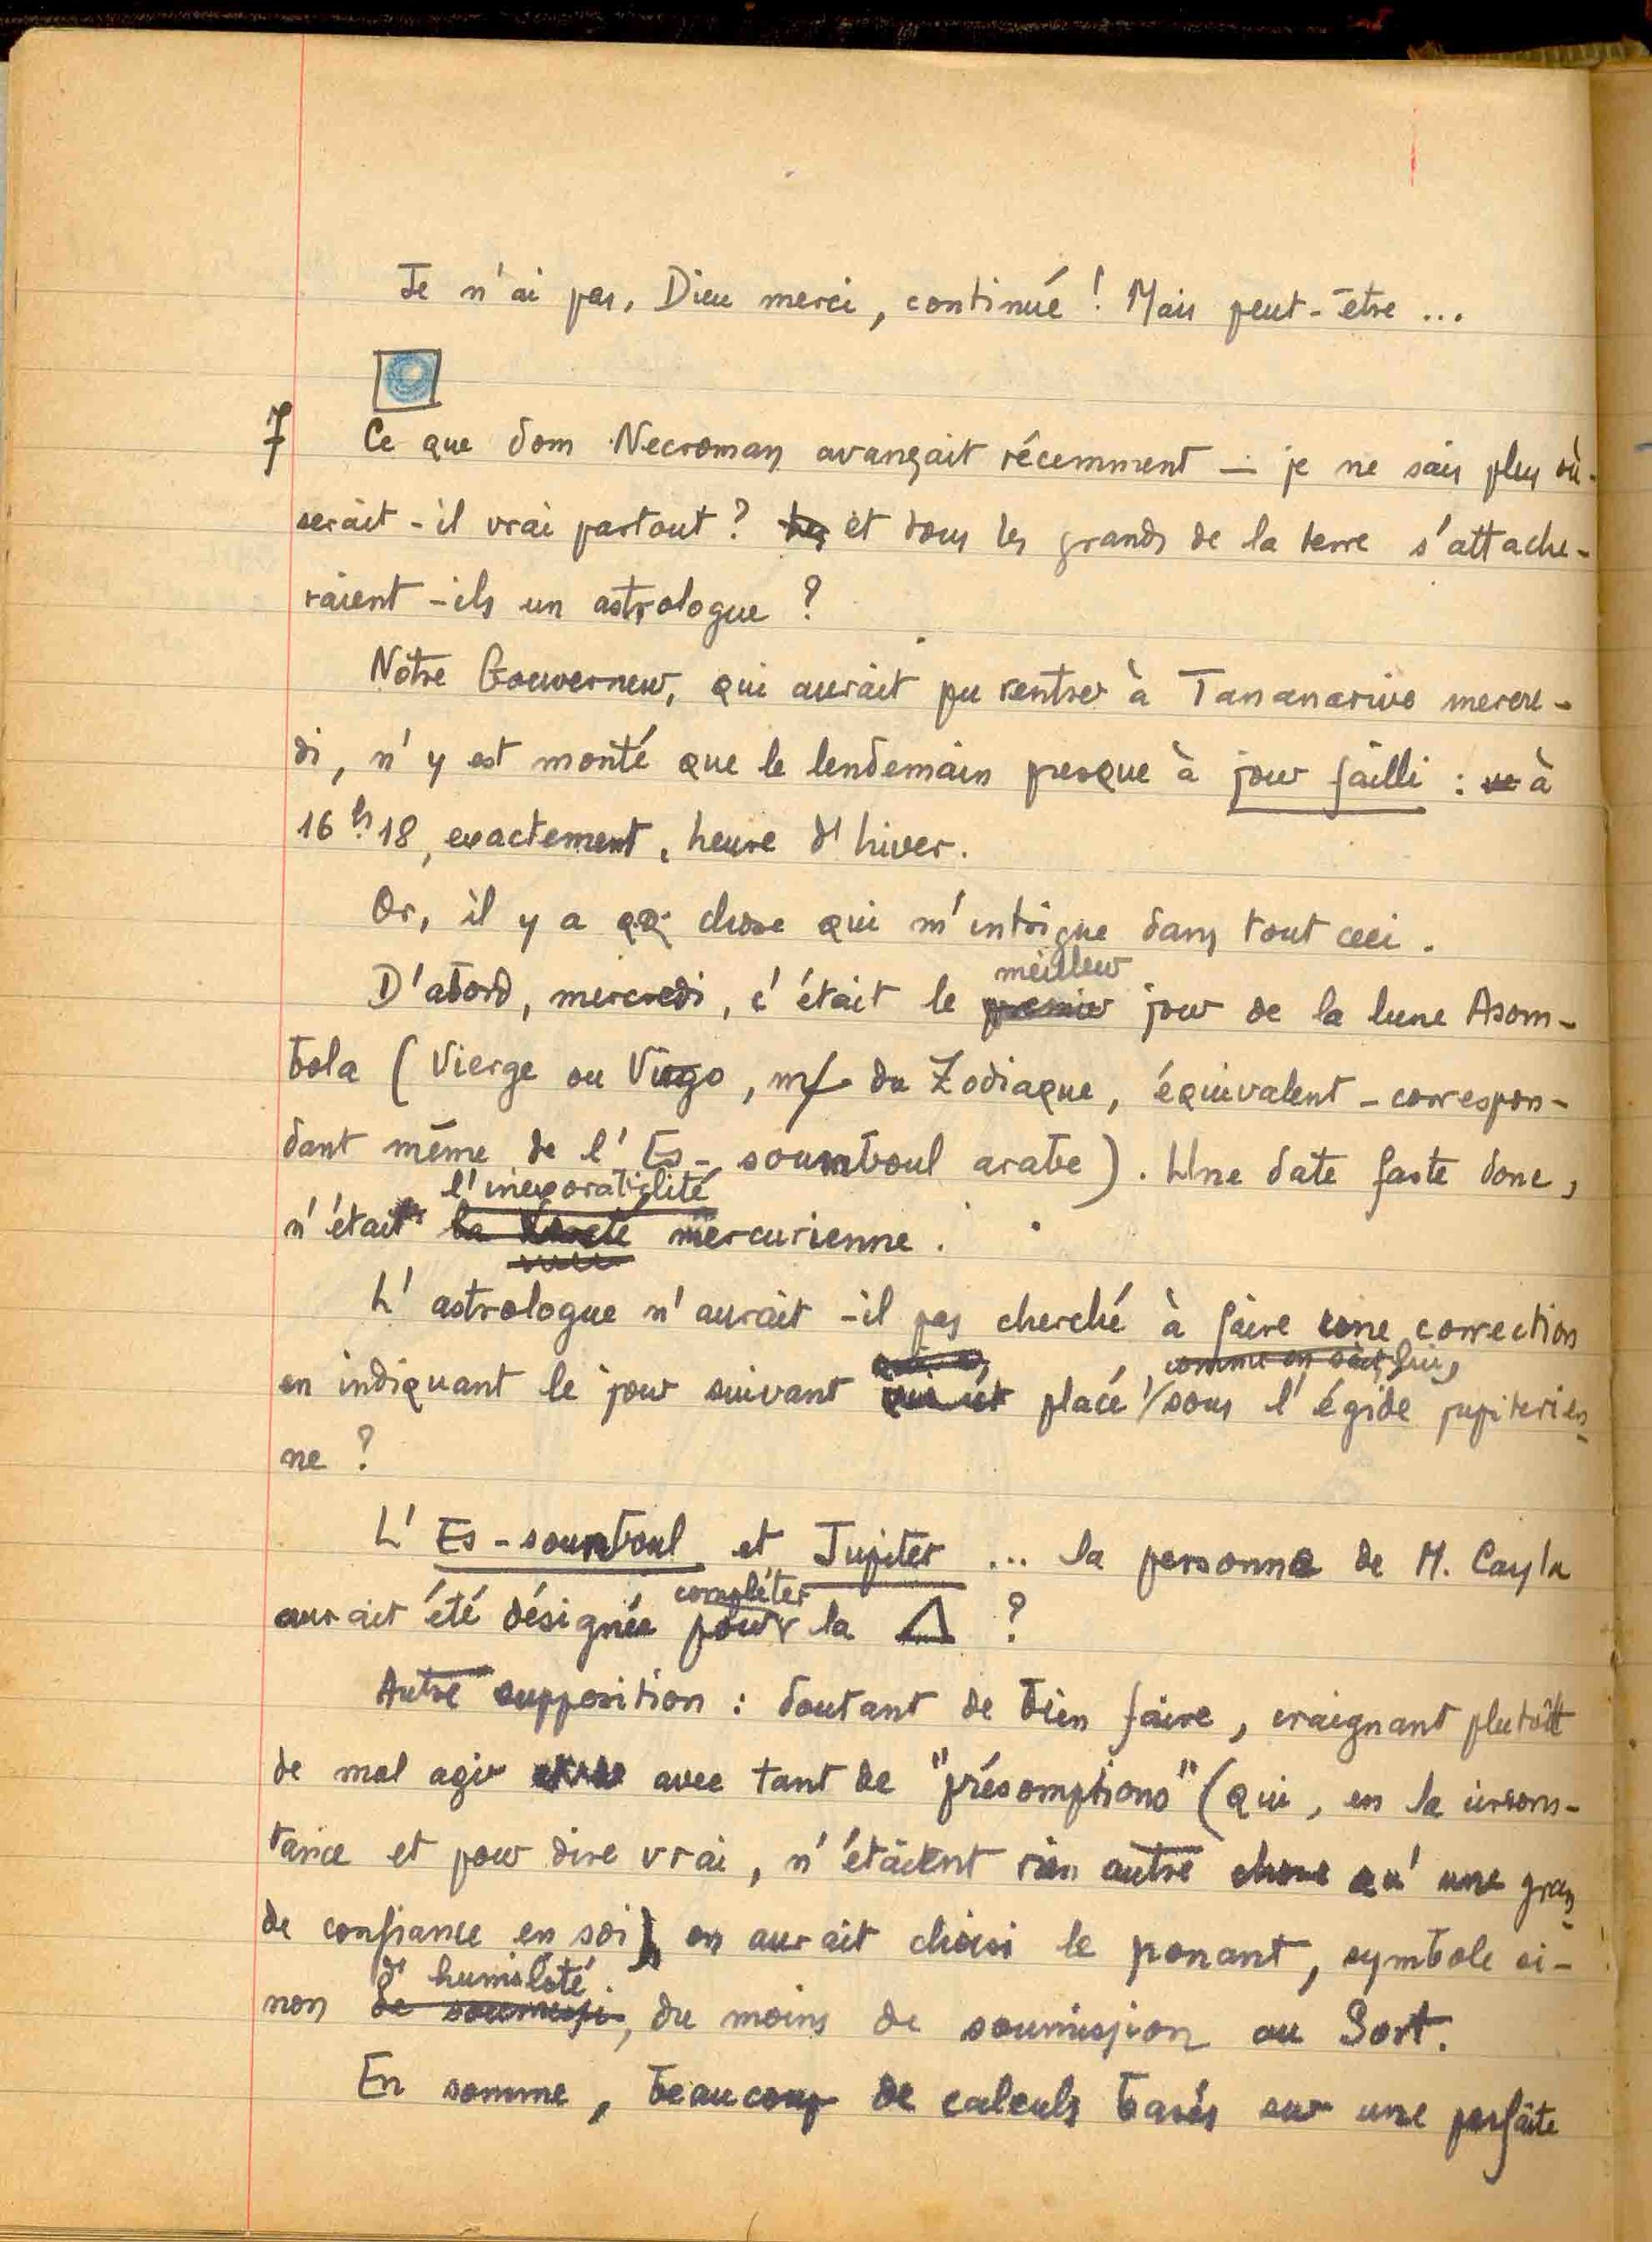 Je n'ai pas, Dieu merci, continué ! Mais peut-être ...
7 Ce que dom Necroman avançait récemment — je ne sais plus où -
serait-il vrai partout ? et tous les grands de la terre s'attache-
raient-ils un astrologue ?
Notre Gouverneur, qui aurait pu rentrer à Tananarive mercre-
di, n'y est monté que le lendemain presque à jour failli : à
16 h 18, exactement, heure d'hiver.
Or, il y a qq. chose qui m'intrigue dans tout ceci.
meilleur
D'abord, mercredi, c'était le premier jour de la lune Asom-
bola (Vierge ou Virgo, du Zodiaque, équivalent - correspon-
dant même de l'Es-soumboul arabe). Une date faste donc,
l'inexorabilité
n'était la dureté mercurienne.
L'astrologue n'aurait-il pas cherché à faire une correction
comme on sait,
en indiquant le jour suivant qui est placé sous l'égide jupiterien-
ne ?
L'Es-soumboul et Jupiter ... la personne de M. Cayla
compléter
aurait été désignée pour la △ ?
Autre supposition : doutant de bien faire, craignant plutôt
de mal agir avec tant de "présomptions" (qui, en laircons-
tance et pour dire vrai, n'étaient rien autre chose qu'une gran-
de confiance en soi) on aurait choisi le ponant, symbole si-
d'humilité
non de soumissi, du moins de soumission au Sort.
En somme, beaucoup de calculs basés sur une parfaite